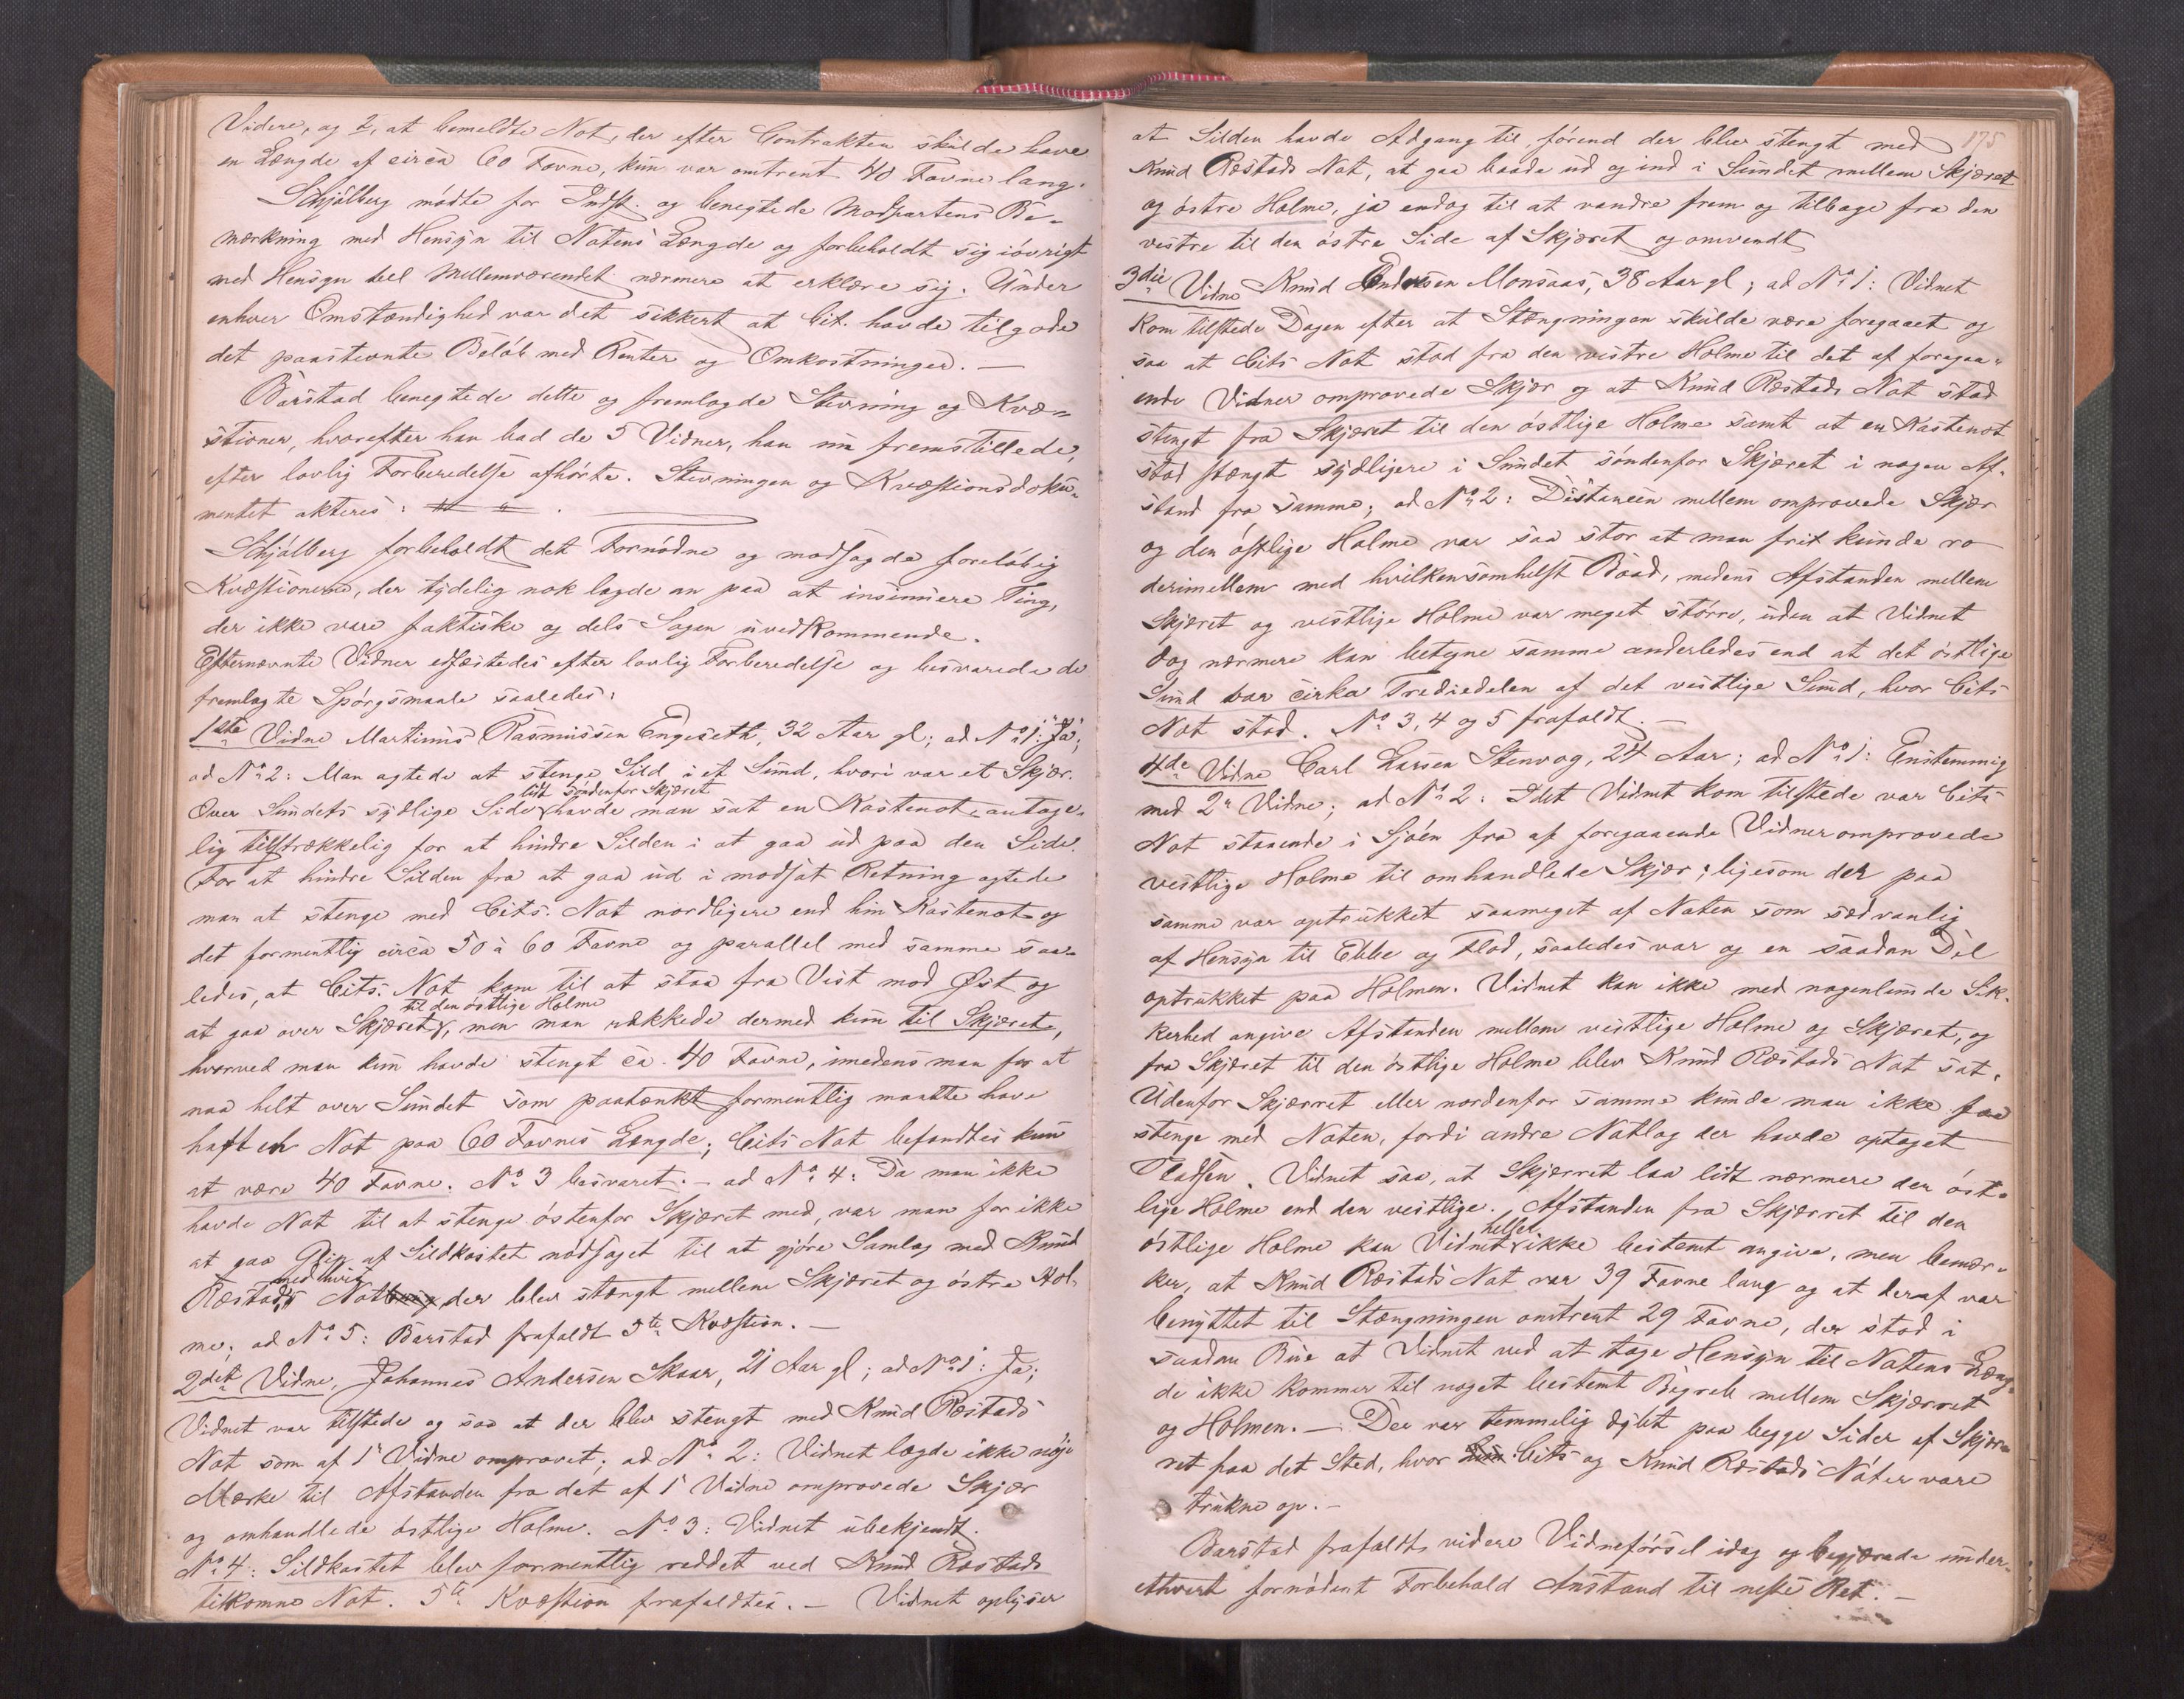 Videre, og 2, at bemeldte Not, der efter Contrakten skulde have
en Længde af circa 60 Favne, kun var omtrent 40 Favne lang.
Schjølberg mødte for Indst. og benegtede Modpartens Be-
mærkning med Hensyn til Notens Længde og forbeholdt sig iøvrigt
med Hensyn til Mellemværendet nærmere at erklære sig. Under
enhver Omstændighed var det sikkert at Cit. havde tilgode
det paastevnte Beløb med Renter og Omkostninger. —
Barstad benegtede dette og fremlagde Stevning og Kvæ-
stioner, hvorefter han bad de 5 Vidner, han nu fremstillede,
efter lovlig Forberedelse afhørte. Stevningen og Kvæstionsdoku-
mentet akteres:
Schjølberg forbeholdt det Fornødne og modsagde foreløbig
Kvæstionerne, der tydelig nok lagde an paa at insinuere Ting,
der ikke vare faktiske og dels Sagen uvedkommende.
Efternævnte Vidner edfæstedes efter lovlig Forberedelse og besvarede de
fremlagte Spørgsmaale saaledes:
1ste Vidne Martinus Rasmussen Engeseth, 32 Aar gl; ad No 1: "Ja";
ad No 2: Man agtede at stenge Sild i et Sund, hvori var et Skjær.
lidt søndenfor Skjæret
Over Sundets sydlige Side havde man sat en Kastenot antage-
lig tilstrækkelig for at hindre Silden i at gaa ud paa den Side.
For at hindre Silden fra at gaa ud i modsat Retning agtede
man at stenge med Cits. Not nordligere end hin Kastenot og
det formentlig circa 50 à 60 Favne og parallel med samme saa-
ledes, at Cits. Not kom til at staa fra Vest mod Øst og
til den østlige Holme
at gaa over Skjæret, men man rækkede dermed kun til Skjæret,
hvorved man kun havde stengt ca. 40 Favne, imedens man for at
naa helt over Sundet som paatænkt formentlig maatte have
haft en Not paa 60 Favnes Længde; Cits Not befandtes kun
at være 40 Favne. No 3 besvaret. - ad No 4: Da man ikke
havde Not til at stenge østenfor Skjæret med, var man for ikke
at gaa Glip af Sildkastet nødsaget til at gjøre Samlag med Knud
med hvis
Ræstad, Not der blev stængt mellem Skjæret og østre Hol-
me; ad No 5: Barstad frafaldt 5te Kvæstion. —
2det Vidne, Johannes Andersen Skaar, 21 Aar gl; ad No 1: Ja;
Vidnet var tilstede og saa at der blev stengt med Knud Ræstads
Not som af 1' Vidne omprovet; ad No 2: Vidnet lagde ikke nøje
Mærke til Afstanden fra det af 1' Vidne omprovede Skjær
og omhandlede østlige Holme. No 3: Vidnet ubekjendt.
No 4: Sildkastet blev formentlig reddet ved Knud Ræstads
tilkomne Not. 5te Kvæstion frafaldtes. — Vidnet oplyser
175
at Silden havde Adgang til, førend der blev stengt med
Knud Ræstads Not, at gaa baade ud og ind i Sundet mellem Skjæret
og østre Holme, ja endog til at vandre frem og tilbage fra den
vestre til den østre Side af Skjæret og omvendt
3die Vidne Knud Andersen Monsaas, 38 Aar gl; ad No 1: Vidnet
kom tilstede Dagen efter at Stængningen skulde være foregaaet og
saa at Cits Not stod fra den vestre Holme til det af foregaa-
ende Vidner omprovede Skjær og at Knud Ræstads Not stod
stengt fra Skjæret til den østlige Holme samt at en Kastenot
stod stængt sydligere i Sundet søndenfor Skjæret i nogen Af-
stand fra samme; ad No 2: Distancen mellem omprovede Skjær
og den østlige Holme var saa stor at man frit kunde ro
derimellem med hvilkensomhelst Baad, medens Afstanden mellem
Skjæret og vestlige Holme var meget større, uden at Vidnet
dog nærmere kan betegne samme anderledes end at det østlige
Sund var cirka Trediedelen af det vestlige Sund, hvor Cits
Not stod. No 3, 4 og 5 frafaldt. —
4de Vidne Carl Larsen Stenvog, 24 Aar; ad No 1: Enstemmig
med 2' Vidne; ad No 2: Idet Vidnet kom tilstede var Cits
Not staaende i Sjøen fra af foregaaende Vidner omprovede
vestlige Holme til omhandlede Skjær; ligesom der paa
samme var optrukket saameget af Noten som sædvanlig
af Hensyn til Ebbe og Flod, saaledes var og en saadan Del
optrukket paa Holmen. Vidnet kan ikke med nogenlunde Sik-
kerhed angive Afstanden mellem vestlige Holme og Skjæret, og
fra Skjæret til den østlige Holme blev Knud Ræstads Not sat.
Udenfor Skjærret eller nordenfor samme kunde man ikke faa
stenge med Noten, fordi andre Notlag der havde optaget
Pladsen. Vidnet saa, at Skjærret laa lidt nærmere den øst-
lige Holme end den vestlige. Afstanden fra Skjærret til den
heller
østlige Holme kan Vidnet ikke bestemt angive, men bemær-
ker, at Knud Ræstads Not var 39 Favne lang og at deraf var
benyttet til Stængningen omtrent 29 Favne, der stod i
saadan Bue at Vidnet ved at tage Hensyn til Notens Læng-
de ikke kommer til noget bestemt Begreb mellem Skjærret
og Holmen. — Der var temmelig dybt paa begge Sider af Skjær-
ret paa det Sted, hvor Cits og Knud Ræstads Nøter vare
trukne op. —
Barstad frafaldt videre Vidneførsel idag og begjærede under
ethvert fornødent Forbehold Anstand til neste Ret. —